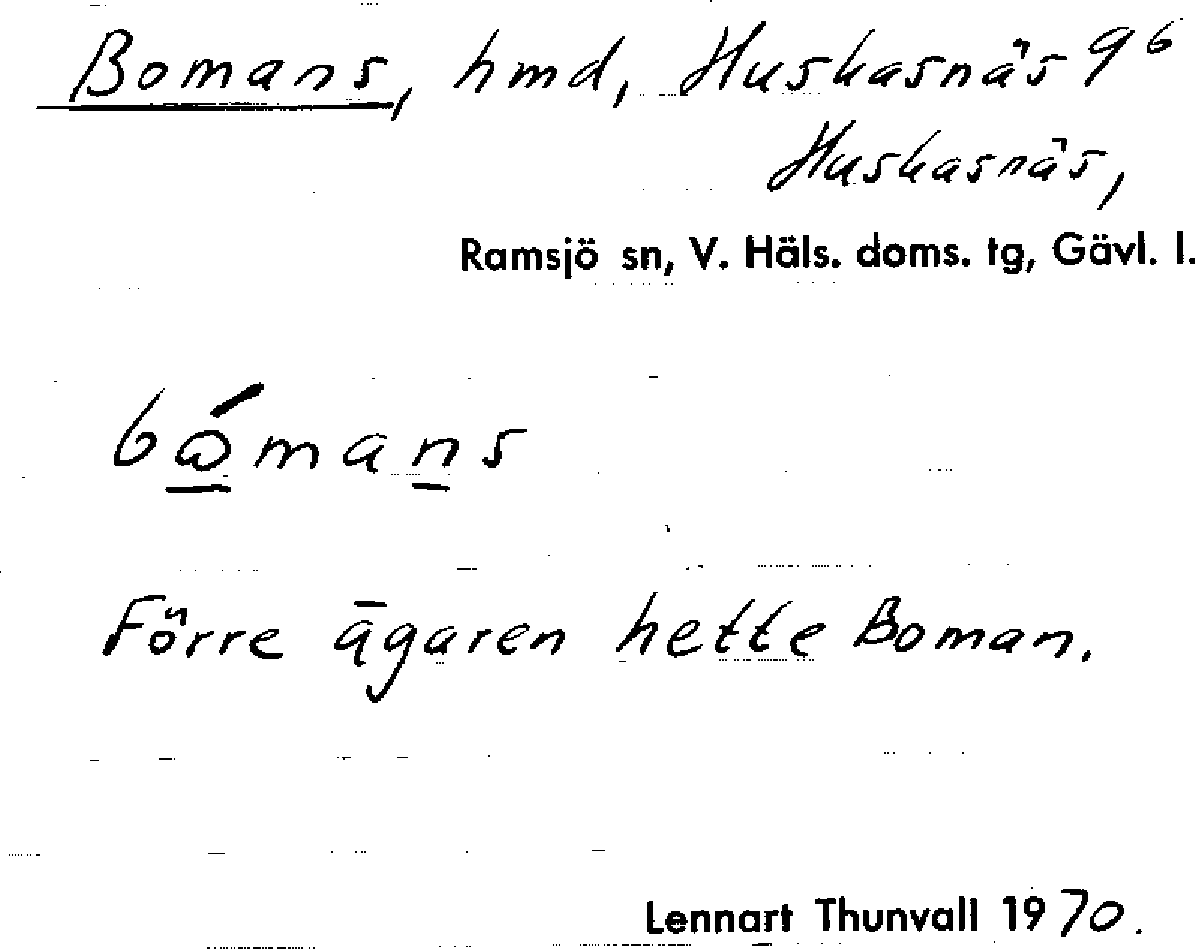 Bomans, hmd, Huskasnäs 9⁶
Huskasnäs,
Ramsjö sn, V. Häls. doms. tg, Gävl. l.
bǻ̲man̲s
Förre ägaren hette Boman.
Lennart Thunvall 1970.